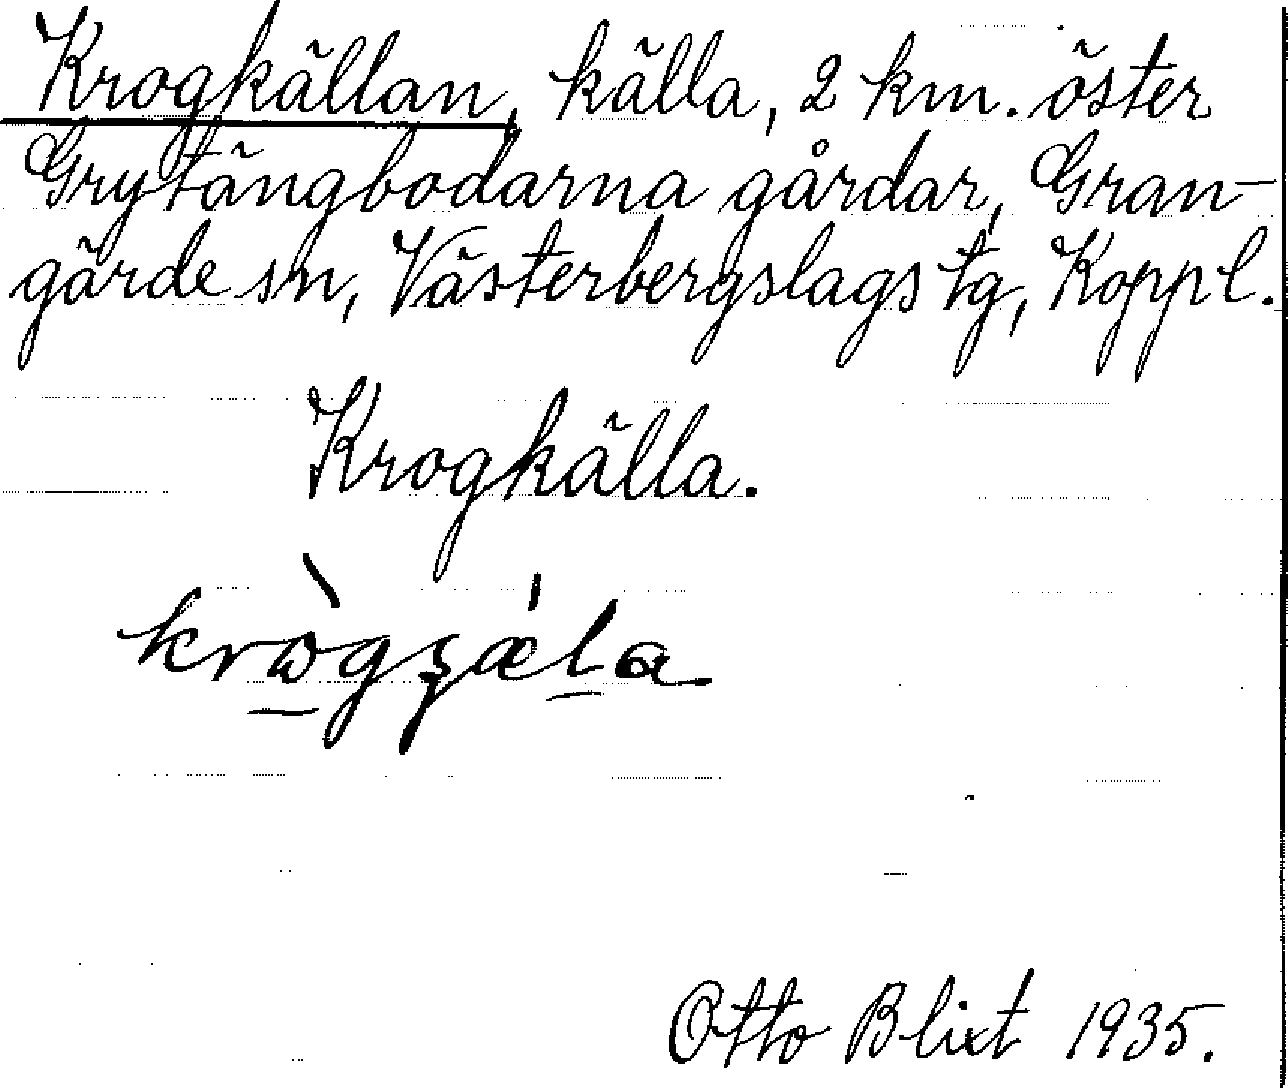 Krogkällan, källa, 2 km. öster
Grytängbodarna gårdar, Gran-
gärde sn, Västerbergslags tg, Koppl.
Krogkälla.
Otto Blixt 1935.